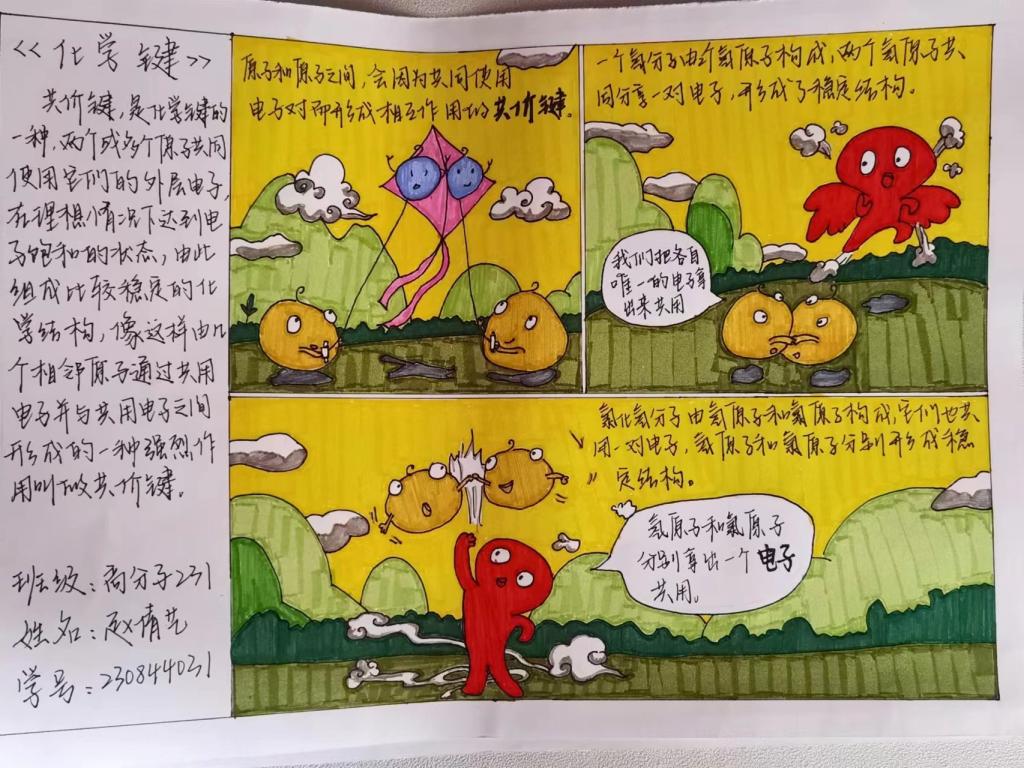 <<化学键>>
共价键,是化学键的
一种,两个或多个原子共同
使用它们的外层电子,
在理想情况下达到电
子饱和的状态,由此
组成比较稳定的化
学结构,像这样由几
个相邻原子通过共用
电子并与共用电子之间
形成的一种强烈作
用叫做共价键。
班级:高分子231
姓名:赵倩艺
学号:230844031
原子和原子之间,会因为共同使用
电子对而形成相互作用的共价键。
一个氢分子由个氢原子构成,两个氢原子共
同分享一对电子,形成了稳定结构。
我们把各自
唯一的电子拿
出来共用
氯化氢分子由氢原子和氯原子构成,它们也共
用一对电子,氢原子和氯原子分别形成稳
定结构。
氢原子和氯原子
分别拿出一个电子
共用。